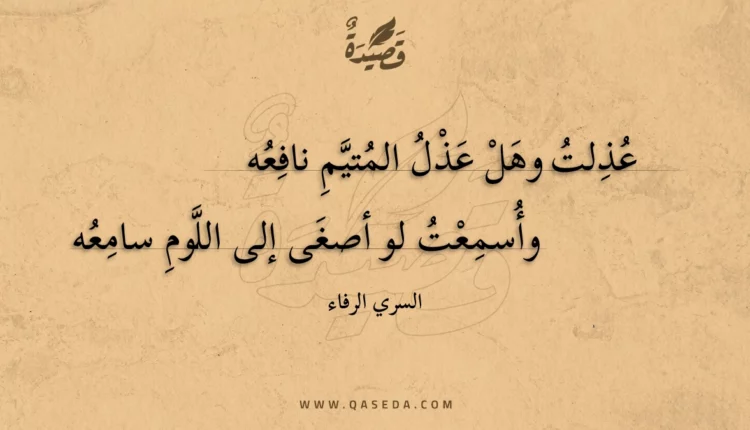 قَصِيدَةٌ
عُذِلتُ وهَلْ عَذْلُ المُتيَّمِ نافِعُه
وأُسمِعْتُ لو أصغَى إلى اللَّومِ سامِعُه
السري الرفاء
WWW.QASEDA.COM